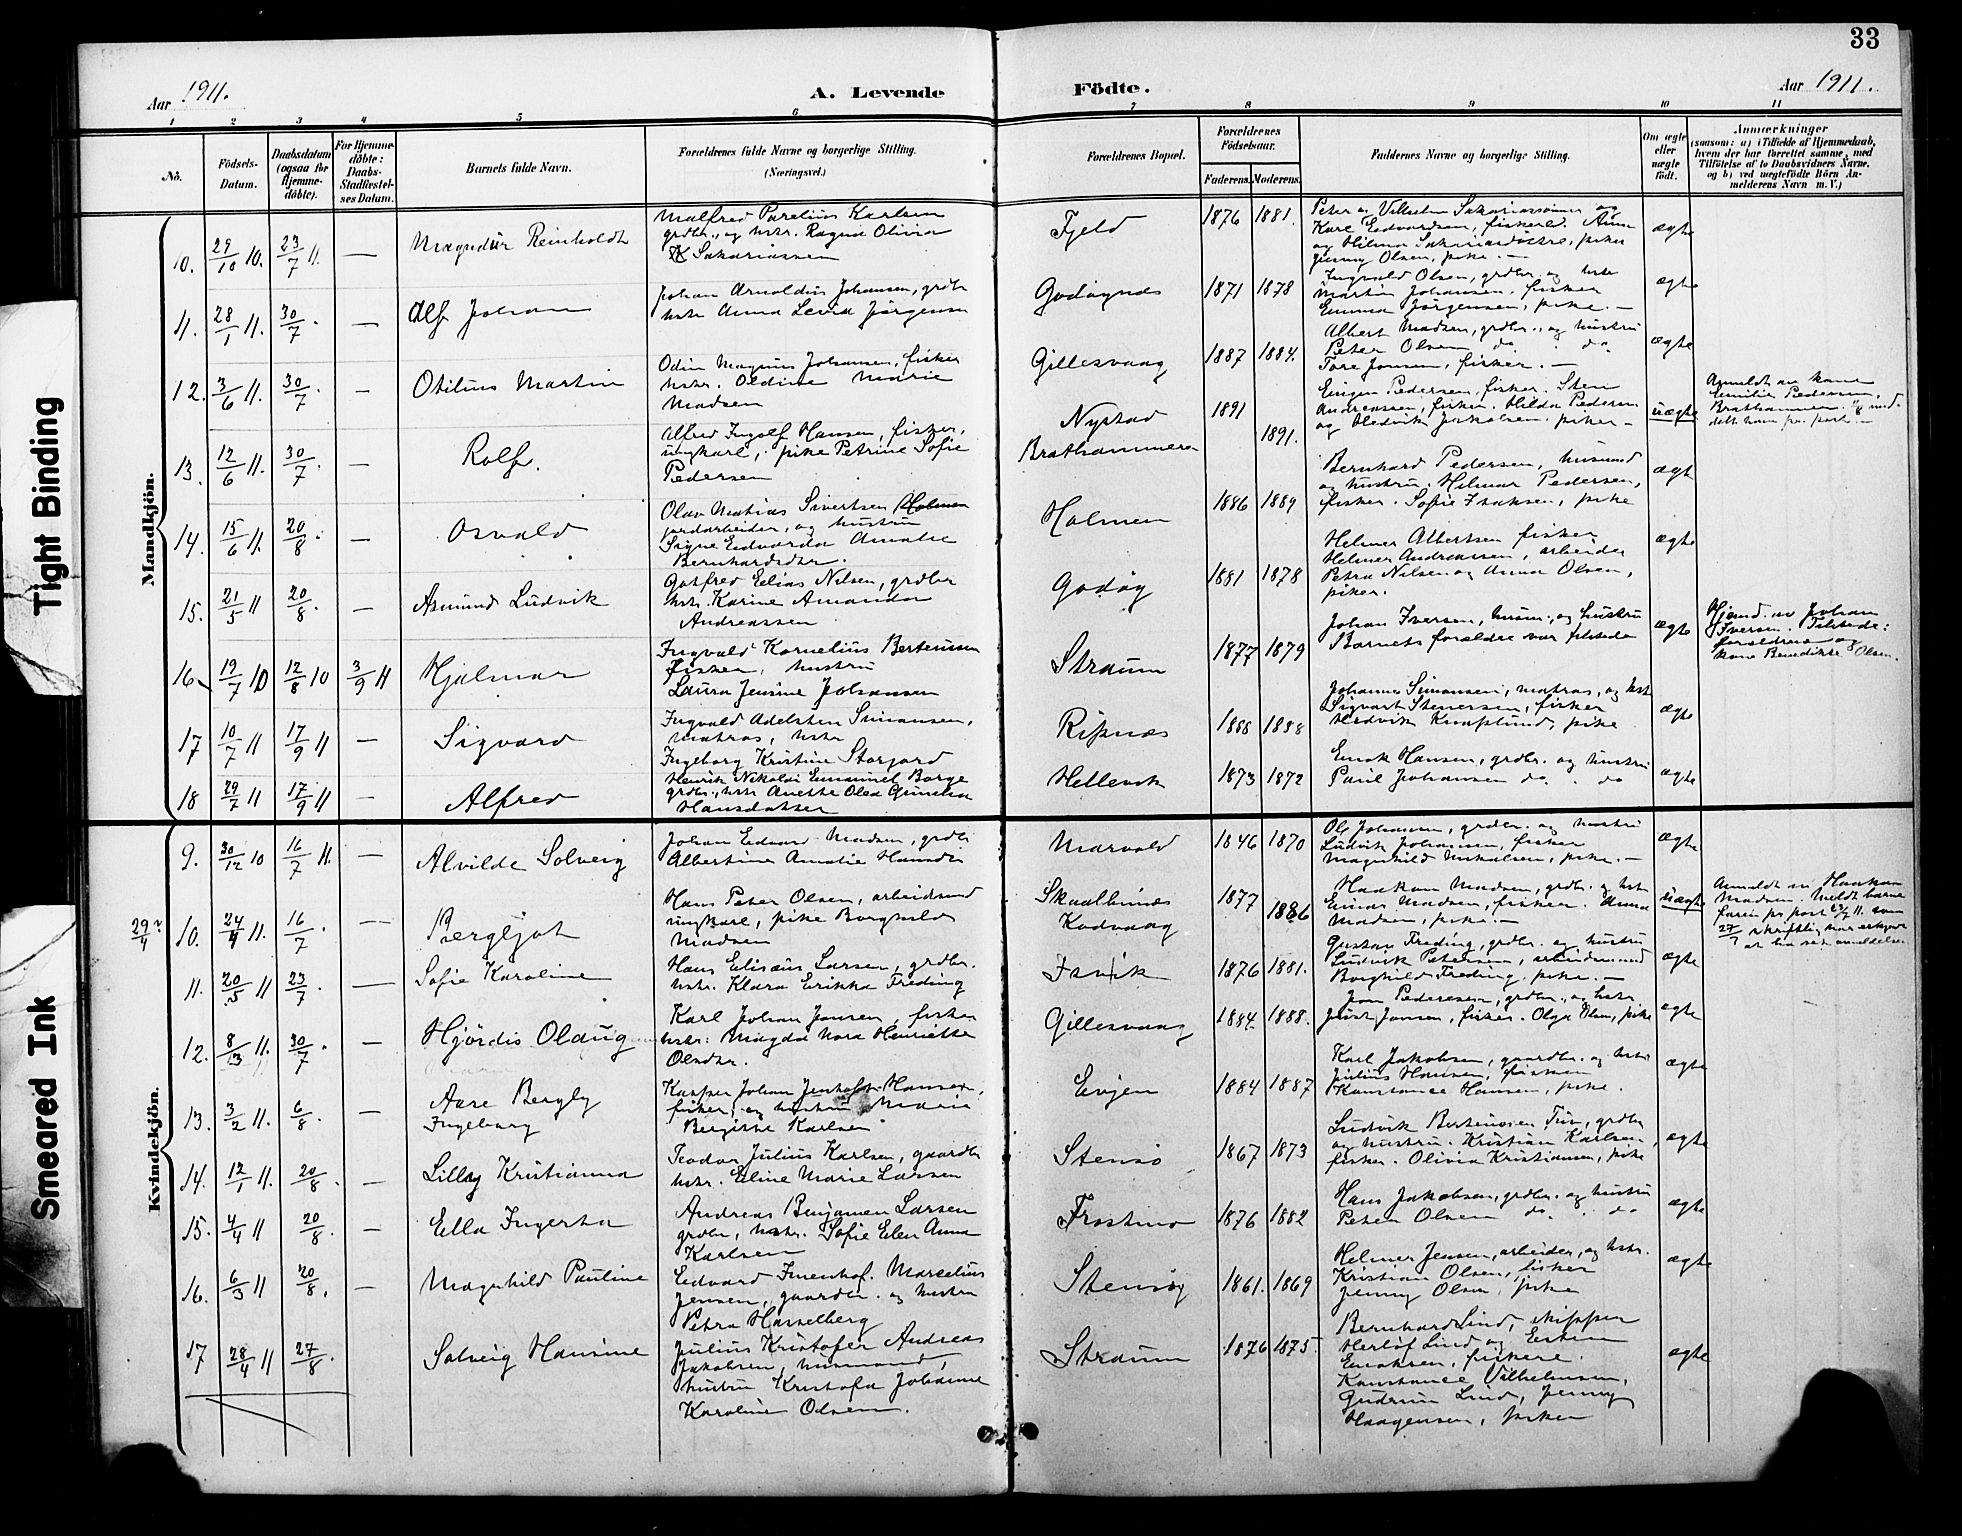 33
Aar 1911.
A. Levende
Födte.
Aar 1911.
1 2 3 4 5 6 7 8 9 10 11
No.
Födsels-Datum.
Daabsdatum (ogsaa for Hjemme-döbte).
For Hjemme-döbte: Daabs-Stadfæstel-ses Datum.
Barnets fulde Navn.
Forældrenes fulde Navne og borgerlige Stilling.
(Næringsvei.)
Forældrenes Bopæl.
Forældrenes Födselsaar.
Faderens. Moderens.
Faddernes Navne og borgerlige Stilling.
Om ægte eller uægte födt.
Anmærkninger
(saasom: a) i Tilfælde af Hjemmedaab,
hvem der har forrettet samme, med
Tilföielse af to Daabsvidners Navne.
og b) ved uægtefödte Börn An-
melderens Navn m. V.)
Mandkjön.
10. 29/10 10. 23/7 11. — Magndur Reinholdt
Malfred Parelius Karlsen
grdbr., og hstr. Ragna Olivia
Sakariassen
Fjeld 1876 1881.
Peter og Vilhelm Sakariassönner og
Karl Edvardsen, fiskere. Anna
og Hilma Sakariasdöttre, piker
Jenny Olsen, pike. —
ægte
11. 28/1 11. 30/7. — Alf Johan
Johan Arnoldus Johansen, grdbr
hstr Anna Levia Jørgensen
Godøynes 1871 1878
Ingvald Olsen, grdbr. og hstr
Martin Johansen, fisker
Emma Jørgensen, pike. —
ægte
12. 3/6 11. 30/7. — Otilius Martin
Odin Magnus Johansen, fisker
hstr. Oldine Marie
Madsen
Gillesvaag 1887 1884.
Albert Madsen, grdbr., og hustru
Peter Olsen do. : do.
Tore Jonsen, fisker. —
ægte
13. 12/6 11. 30/7. — Rolf.
Alfred Ingolf Hansen, fisker,
ungkarl, pike Petrine Sofie
Pedersen
Nystad
Brathammeren
1891 1891.
Eingen Pedersen, fisker. Sten
Andreassen, fisker. Hilda Pedersen
og Hedvik Jakobsen. piker —
uægte
Anmeldt av kone
Emilie Pedersen,
Brathammeren.
14. 15/6 11. 20/8. — Osvald
Olav Matias Sivertsen Holmen
jordarbeider, og hustru
Signe Edvarda Amalie
Bernhardsdtr.
Holmen 1886 1889
Bernhard Pedersen, husmand
og hustru. Hilmar Pedersen,
fisker. Sofie Isaksen, pike
ægte
15. 21/5 11 20/8. — Asmund Ludvik
Gotfred Elias Nilsen, grdbr
hstr. Karine Amanda
Andreassen
Godøy 1881 1878
Helmer Albertsen fisker
Helmer Andreassen, arbeider
Petra Nilsen og Anna Olsen,
piker.
ægte
16. 19/7 10 12/8 10 3/9 11 Hjalmar
Ingvald Kornelius Berteussen
fisker, hustru
Laura Jensine Johansen
Straum 1877 1879
Johan Iversen, husm. og hustru
Barnets forældre var tilstede
ægte
Hjemd. av Johan
Iversen. Tilstede:
forældrene og
kone Benedikte Olsen.
17 10/7 11 17/9 11 — Sigvard
Ingvald Adelsten Simonsen,
matros, hstr
Ingeborg Kristine Storjord
Ripnes 1888 1888
Johannes Simonsen, matros, og hstr
Sigvart Stenersen, fisker
Hedvik Knaplund, pike
ægte
18 29/7 11 17/9 11 — Alfred
Henrik Nikolai Emanuel Borge
grdbr., hstr Anette Olea Gunelia
Hansdatter
Hellevik 1873 1872
Enok Hansen, grdbr. og hustru
Paul Johansen do. do
ægte
Kvindekjön.
9. 30/12 10 16/7 11. — Alvilde Solveig
Johan Edvard Madsen, grdbr
Albertine Amalie Hansdr
Marvold 1846 1870
Ole Johansen, grdbr. og hustru
Ludvik Johansen, fisker
Magnhild Mikalsen, pike. —
ægte
29/4? 10. 24/4 11. 16/7. — Bergljot
Hans Peter Olsen, arbeidsmd
ungkarl, pike Borghild
Madsen
Skaalbunes
Kodvaag
1877 1886
Haakon Madsen, grdbr. og hstr
Einar Madsen, fisker. Anna
Madsen, pike. —
uægte
Anmeldt av Haakon
Madsen. Meldt barne
faren pr. post 23/7 11. som
27/7 skriftlig har erkjendt
at ha set anmeldelsen
11. 20/5 11 23/7. — Sofie Karoline
Hans Elisæus Larsen, grdbr.
hstr. Klara Erikka Freding
Isvik 1876 1881.
Gustav Freding, grdbr. og hustru
Ludvik Petersen, arbeidsmand
Borghild Freding, pike. —
ægte
12. 8/3 11. 30/7. Hjørdis Oldaug
Karl Johan Jonsen, fisker
hstr: Magda Nora Henriette
Olsdtr.
Gillesvaag 1884 1888.
Jon Pedersen, grdbr., og hstr
Just Jonsen, fisker. Olga Olsen, pike
ægte
13. 3/2 11. 6/8. — Aase Bergly
Ingeborg
Kasper Johan Jenhoft Hansen,
fisker, og hustru Marie
Bergitte Karlsen
Evjen 1884 1887
Karl Jakobsen, gaardbr. og hstr
Julius Hansen, fisker
Konstance Hansen, pike.
ægte
14. 12/1 11. 20/8. — Lilly Kristianna
Teodor Julius Karlsen, gaardbr
hstr. Eline Marie Larsen
Stensø 1867 1873
Ludvik Berteussen Tuv, grdbr
og hustru. Kristian Karlsen,
fisker. Olivia Kristiansen, pike
ægte
15. 4/4 11 20/8. — Ella Ingerta
Andreas Benjamin Larsen
grdbr, hstr. Sofie Elen Anna
Karlsen
Frostmo 1876 1882
Hans Jakobsen, grdbr. og hustru
Peter Olsen do. : do
ægte
16. 6/3 11 20/8. — Magnhild Pauline
Edvard Imenhof. Marcelius
Jensen, gaardbr. og hustru
Petra Hasselberg
Stensøy 1861. 1869
Helmer Jensen, arbeider, og hstr.
Kristian Olsen, fisker
Jenny Olsen, pike
ægte
17 28/4 11 27/8. Solveig Hansine
Julius Kristofer Andreas
Jakobsen, husmand,
hustru Kristofa Johanne
Karoline Olsen.
Straum 1876 1875.
Bernhard Lind, skipper
Herlof Lind og Edvin
Enoksen, fiskere.
Konstance Vilhelmsen,
Gudrun Lind, Jenny
Haagensen, piker
ægte
Tight Binding
Smeared Ink